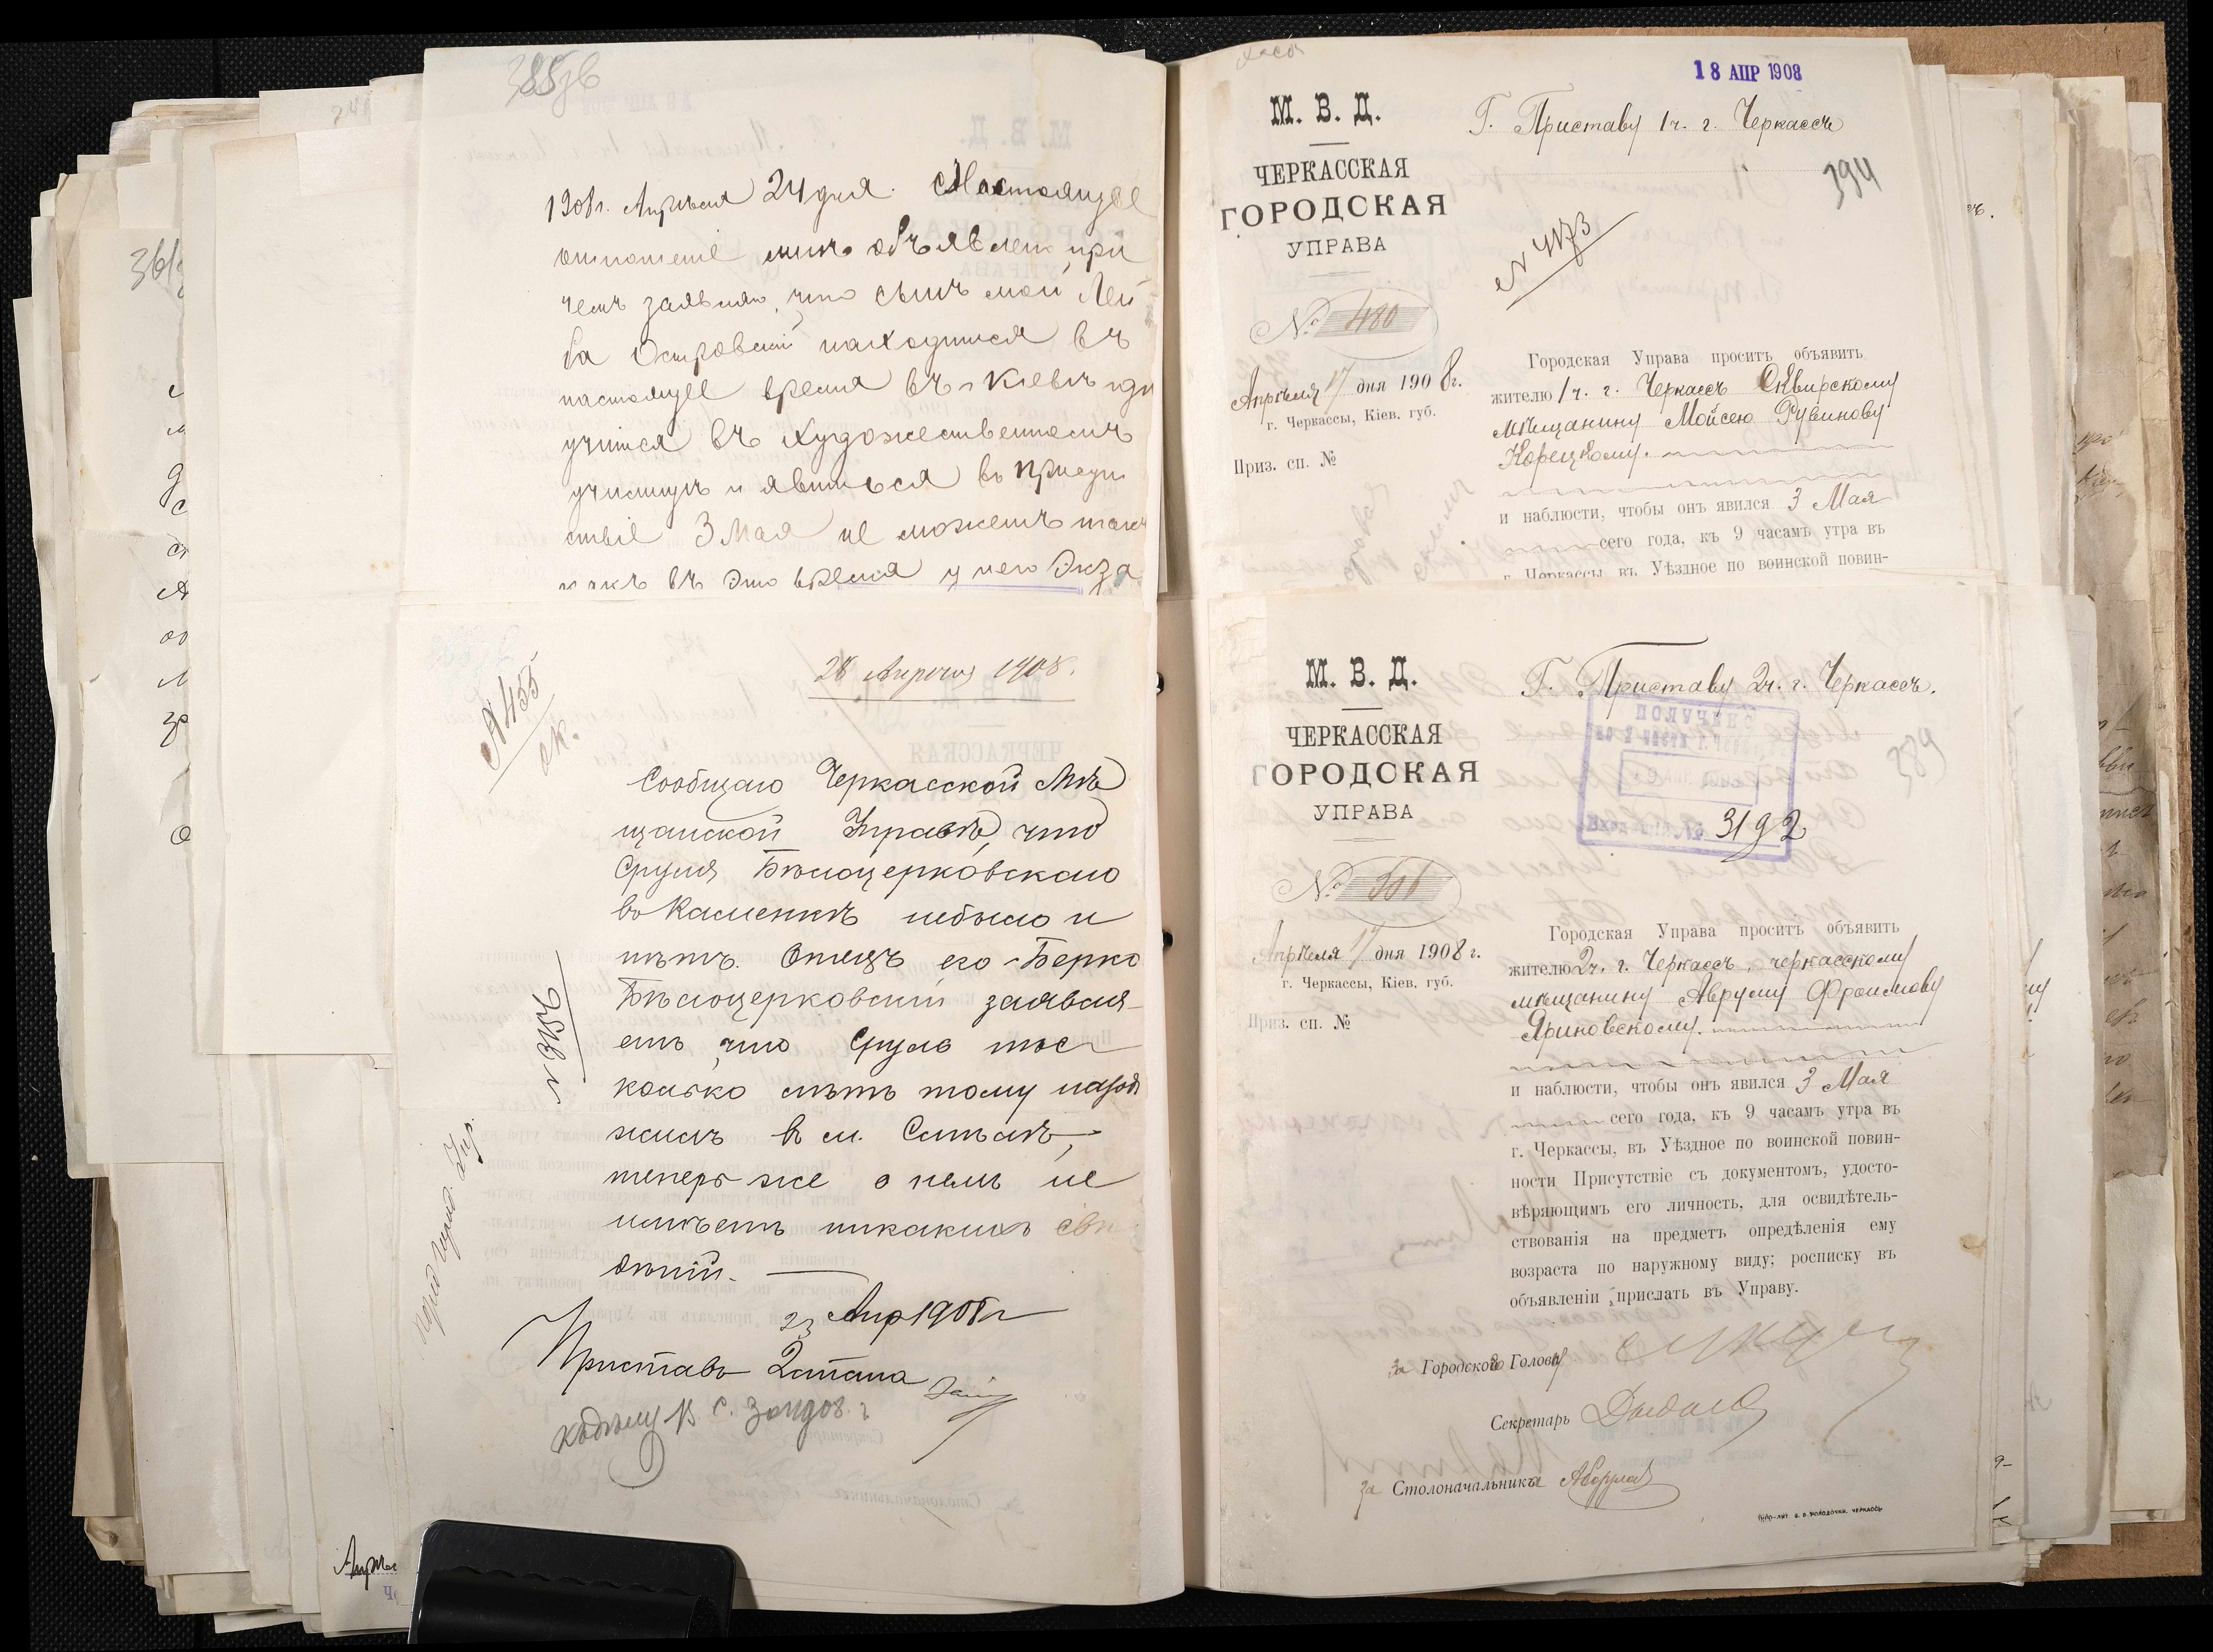 385об
1908г. Апрѣля 24 дня. Настоящее
отношеніе мнѣ объявлено при
чемъ заявляю, что сынъ мой Лей
ба Островскій находится въ
настоящее время въ г Кіевѣ гдѣ
учится въ Художественномъ
училищѣ и явиться въ присут
ствіе 3 Мая не можетъ такъ
какъ въ это время у него Экза
28 Апрѣля 1908.
№ 455
Сообщаю Черкасской Мѣ
щанской Управѣ, что
Сруля Бѣлоцерковскаго
въ Каменкѣ небыло и
нѣтъ. Отецъ его Берко
Бѣлоцерковскій заявля-
етъ, что Сруль нѣс
колько лѣтъ тому назадъ
жилъ в м. Смѣлѣ,
теперь же о немъ не
имѣетъ никакихъ свѣ
дѣній.
23 Апр 1908 г
Приставъ 2 стана
18 АПР 1908
М. В. Д.
ЧЕРКАССКАЯ
ГОРОДСКАЯ
УПРАВА
№ 480
Апрѣля 17 дня 1908 г.
г. Черкассы, Кіев. губ.
Приз. сп. №
Г. Приставу 1 ч. г. Черкассъ
394
№ 4173
Городская Управа проситъ объявить
жителю 1 ч. г. Черкассъ Сквирскому
мѣщанину Мойсею Рувинову
Корецкому.
и наблюсти, чтобы онъ явился 3 Мая
сего года, къ 9 часамъ утра въ
г. Черкассы, въ Уѣздное по воинской повин-
М. В. Д.
ЧЕРКАССКАЯ
ГОРОДСКАЯ
УПРАВА
№ 506
Апрѣля 17 дня 1908 г.
г. Черкассы, Кіев. губ.
Приз. сп. №
Г. Приставу 2 ч. г. Черкассъ.
ПОЛУЧЕНО
3192
389
Городская Управа проситъ объявить
жителю 2 ч. г. Черкассъ, черкасскому
мѣщанину Аврумму Фроимову
Яриновскому.
и наблюсти, чтобы онъ явился 3 Мая
сего года, къ 9 часамъ утра въ
г. Черкассы, въ Уѣздное по воинской повин-
ности Присутствіе съ документомъ, удосто-
вѣряющимъ его личность, для освидѣтель-
ствованія на предметъ опредѣленія ему
возраста по наружному виду; росписку въ
объявленіи прислать въ Управу.
за Городского Голову
Секретарь
за Столоначальника